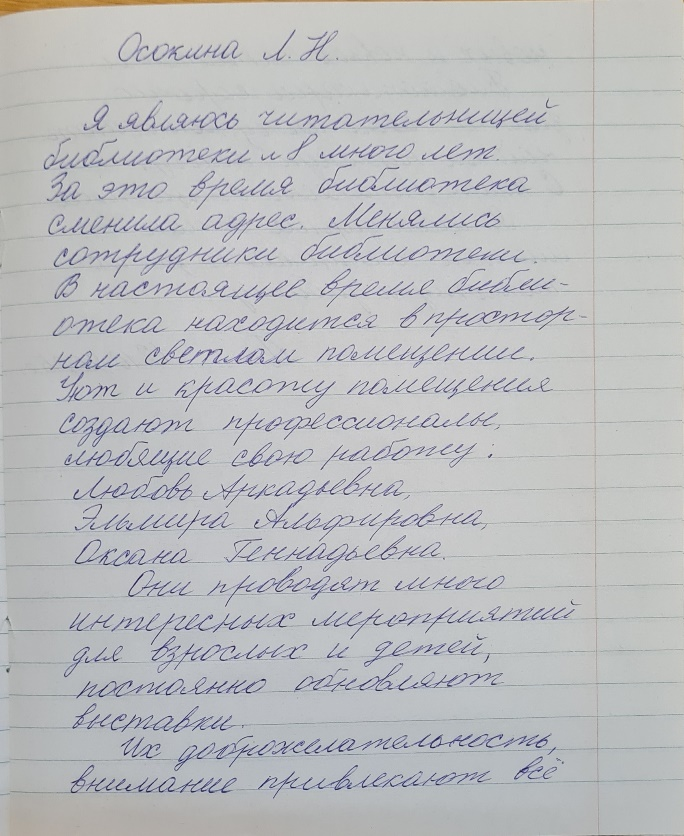 Осокина Л. Н.
Я являюсь читательницей
библиотеки № 8 много лет.
За это время библиотека
сменила адрес. Менялись
сотрудники библиотеки.
В настоящее время библи-
отека находится в простор-
ном светлом помещении.
Уют и красоту помещения
создают профессионалы,
любящие свою работу:
Любовь Аркадьевна,
Эльмира Альфировна,
Оксана Геннадьевна.
Они проводят много
интересных мероприятий
для взрослых и детей,
постоянно обновляют
выставки.
Их доброжелательность,
внимание привлекают всё